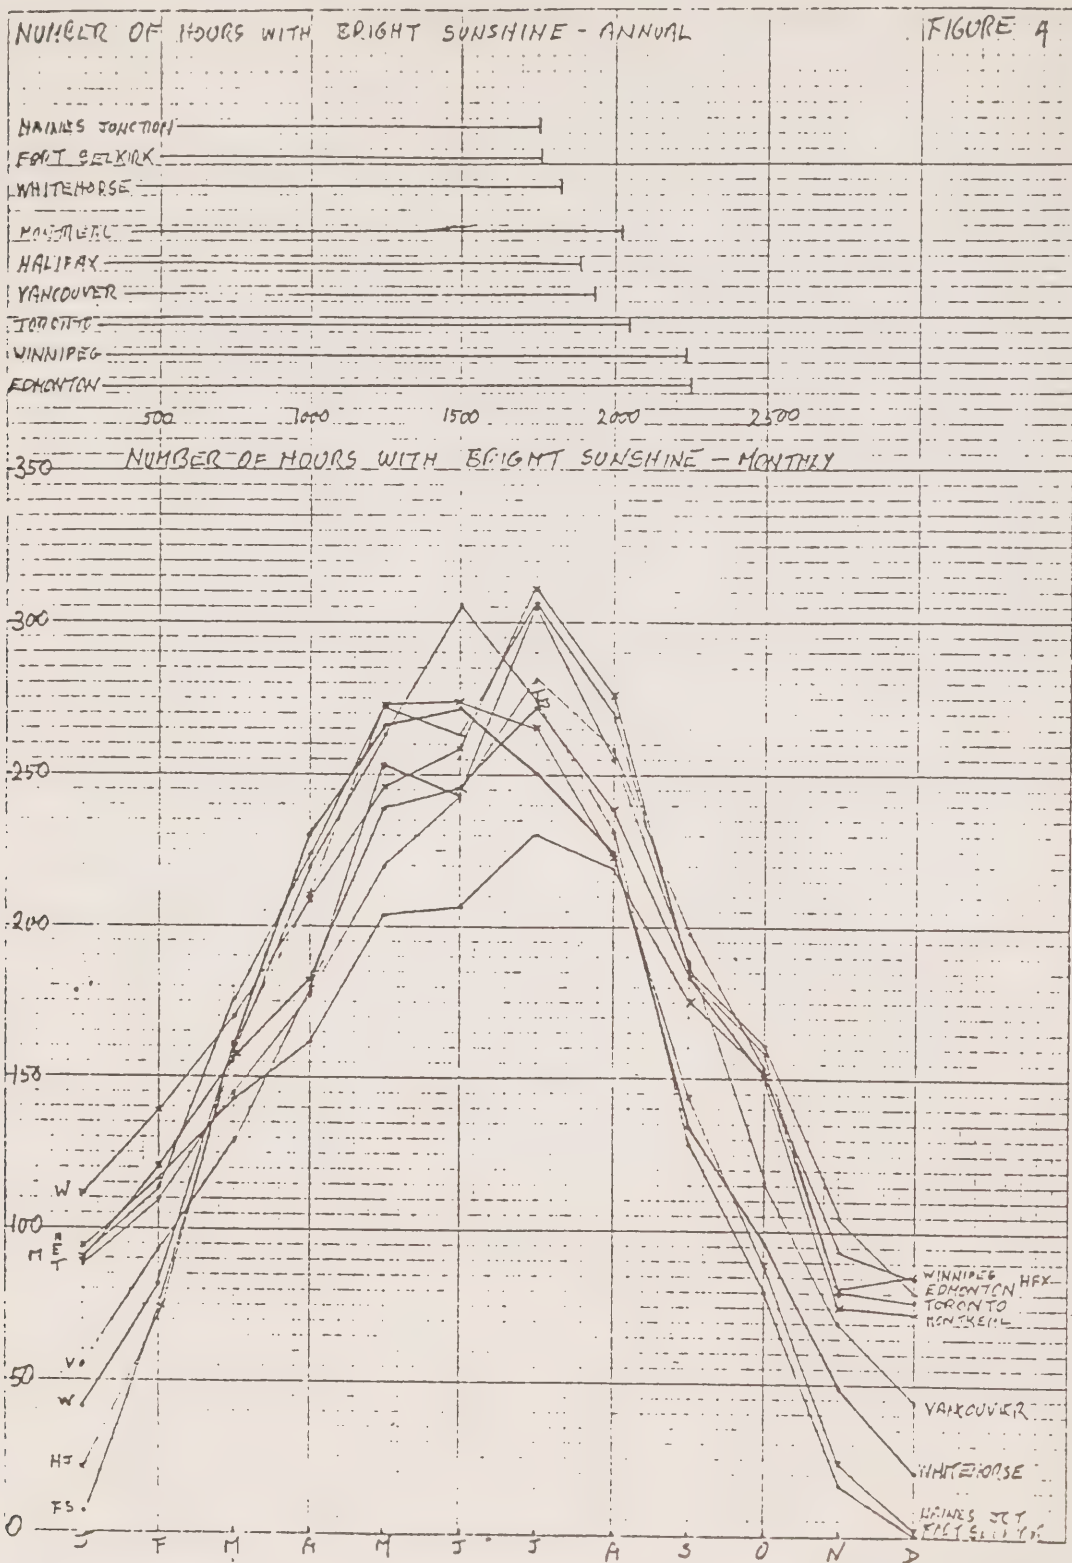 NUMBER OF HOURS WITH BRIGHT SUNSHINE - ANNUAL
FIGURE 4
HAINES JUNCTION
FORT SELKIRK
WHITEHORSE
MONTREAL
HALIFAX
VANCOUVER
TORONTO
WINNIPEG
EDMONTON
500 1000 1500 2000 2500
NUMBER OF HOURS WITH BRIGHT SUNSHINE - MONTHLY
350
300
250
200
150
W
100
M
E
T
WINNIPEG
EDMONTON HFX
TORONTO
MONTREAL
V
50
W
VANCOUVER
HJ
WHITEHORSE
FS
HAINES JCT
FORT SELKIRK
0
J F M A M J J A S O N D